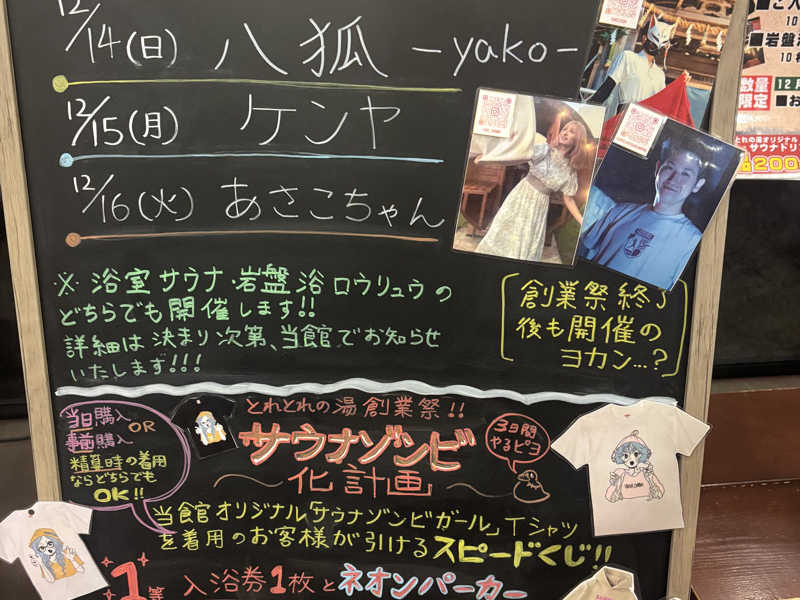 12/14(日) 八狐 -yako-
12/15(月) ケンヤ
12/16(火) あさこちゃん
※ 浴室サウナ・岩盤浴ロウリュウの
どちらでも開催します!!
詳細は決まり次第、当館でお知らせ
いたします!!!
創業祭終了
後も開催の
ヨカン...?
当日購入
OR
事前購入
精算時の着用
ならどちらでも
OK!!
とれとれの湯創業祭!!
サウナゾンビ
化計画
3日間
やるピヨ
当館オリジナル「サウナゾンビガール」Tシャツ
を着用のお客様が引けるスピードくじ!!
1等 入浴券1枚とネオンパーカー
■岩盤
数量
限定
12月
とれの湯オリジナル
サウナドリ
200